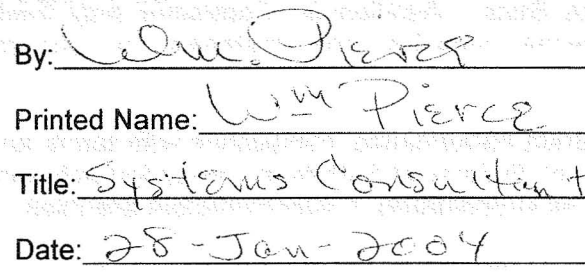 By: Wm. Pierce
Printed Name: Wm Pierce
Title: Systems Consultant
Date: 28-Jan-2004